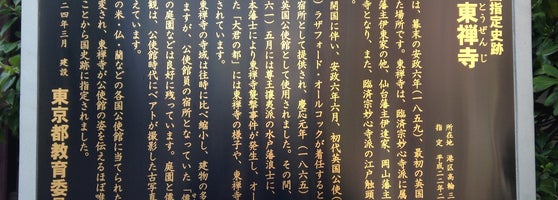 指定史跡
東禅寺
とうぜんじ
所在地 港区高輪三
指定 平成二二年二
は、幕末の安政六年(一八五九)最初の英国
た場所です。東禅寺は、臨済宗妙心寺派に属
藩主伊東家の他、仙台藩主伊達家、岡山藩主
寺となり、また、臨済宗妙心寺派の江戸触頭
開国に伴い、安政六年六月、初代英国公使(
)ラザフォード・オールコックが着任すると
宿所として提供され、慶応元年(一八六五)
英国公使館として使用されました。その間、
六一)五月には尊王攘夷派の水戸藩浪士に、
本藩士により東禅寺襲撃事件が発生し、オー
『大君の都』には東禅寺の様子や、東禅寺
されています。
東禅寺の寺域は往時に比べ縮小し、建物の多
ますが、公使館員の宿所となっていた「僊
の庭園などは良好に残っています。庭園と僊
観は、公使館時代にベアトが撮影した古写真
えています。
の米・仏・蘭などの各国公使館に当てられた
変され、東禅寺が公使館の姿を伝えるほぼ唯
ことから国史跡に指定されました。
二四年三月 建設
東京都教育委員